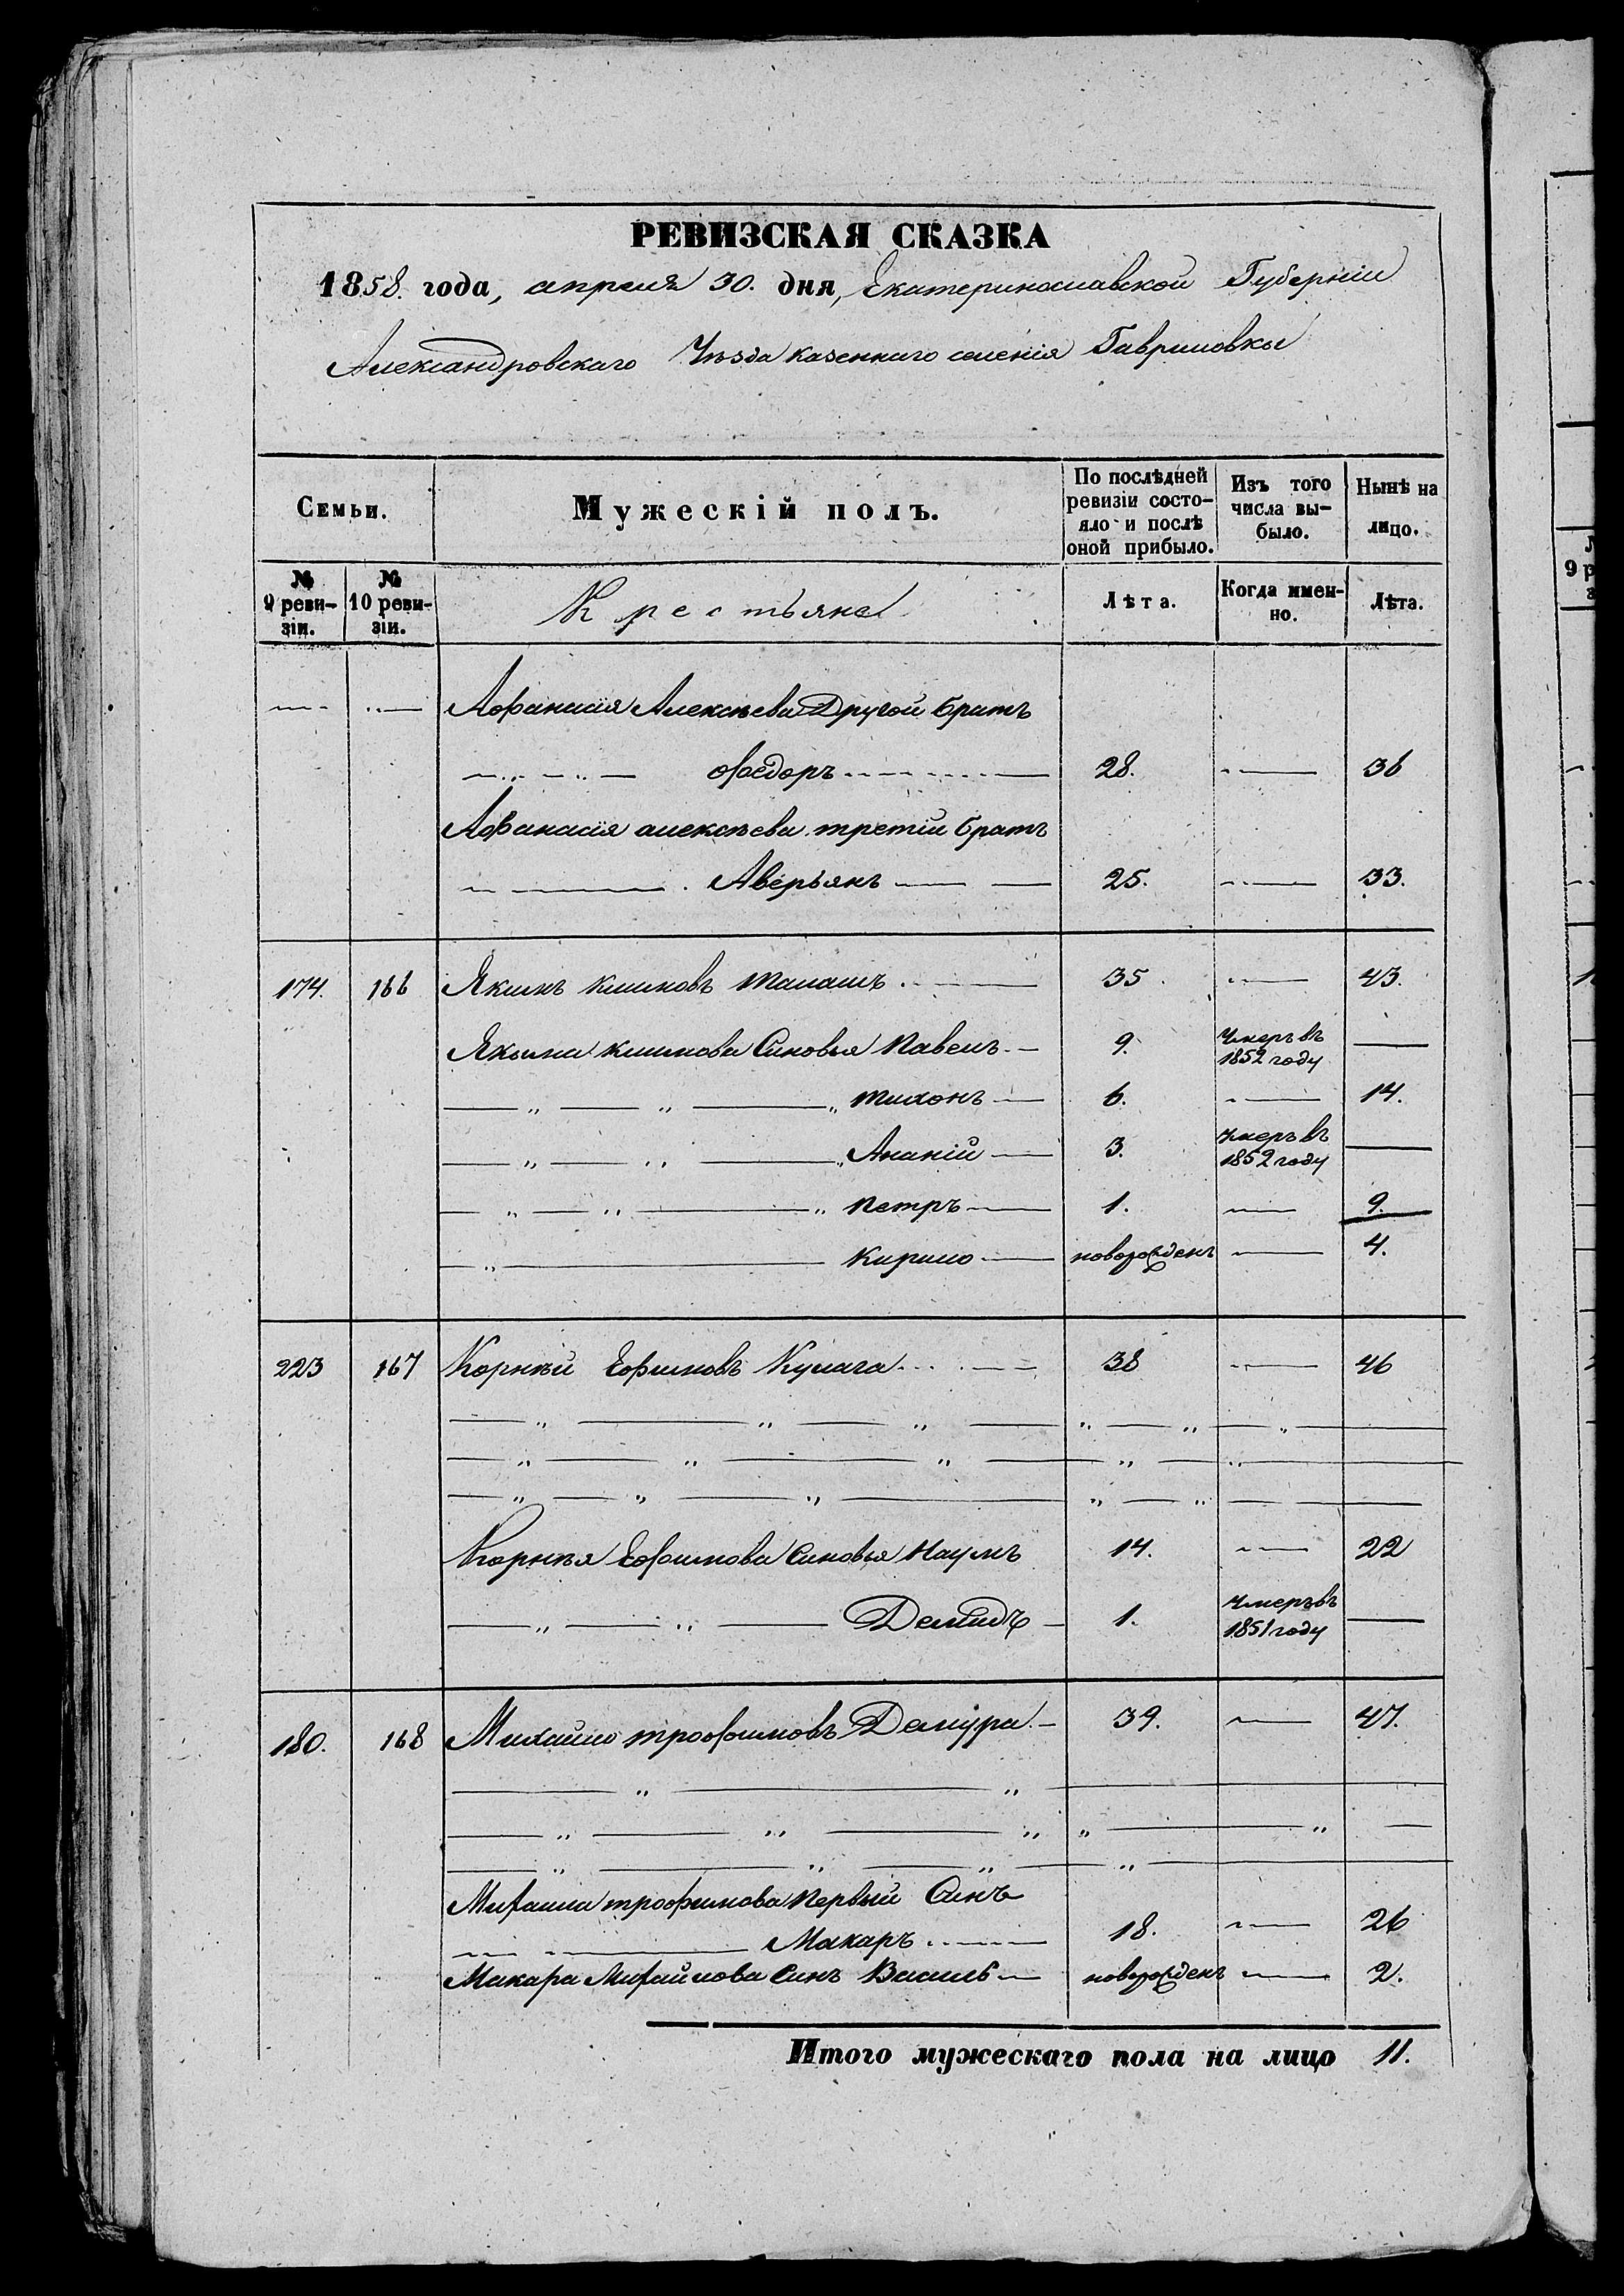 РЕВИЗСКАЯ СКАЗКА
1858. года, апреля 30. дня, Екатеринославской Губерніи
Александровскаго Уѣзда казеннаго селенія Гавриловки
Семьи. Мужескій полъ. По послѣдней ревизіи состояло и послѣ оной прибыло. Изъ того числа выбыло. Нынѣ на лицо.
№ 9 ревизіи. № 10 ревизіи. Крестьяне Лѣта. Когда именно. Лѣта.
Афанасія Алексѣева Другой братъ
Федоръ 28. 36
Афанасія алексѣева третій братъ
Аверьянъ 25. 33.
174. 166 Якимъ климовъ 35 43.
Якима климова Сыновья Павелъ 9. Умеръ въ 1852 году
тихонъ 6. 14.
Ананій 3. Умеръ въ 1852 году
петръ 1. 9.
Кирило новорожденъ 4.
223 167 Корнѣй Ефимовъ Кулага 38 46
Корнѣя Ефимова Сыновья Наумъ 14. 22
Демидъ 1. Умеръ въ 1851 году
180. 168 Михайло трофимовъ Демура 39. 47.
Михаила трофимова первый Сынъ
Макаръ 18. 26
Макара Михайлова Сынъ Василь новорожденъ 2.
Итого мужескаго пола на лицо 11.